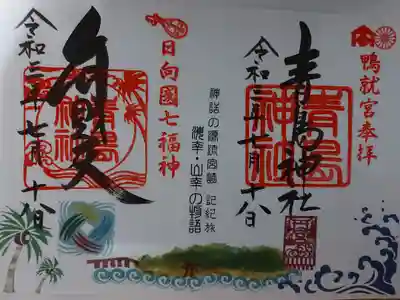 鴨就宮奉拝
青島神社
青島
神社
令和三年七月十八日
神話の源流宮崎 記紀旅
海幸・山幸の物語
日向國七福神
弁財天
令和三年七月十八日